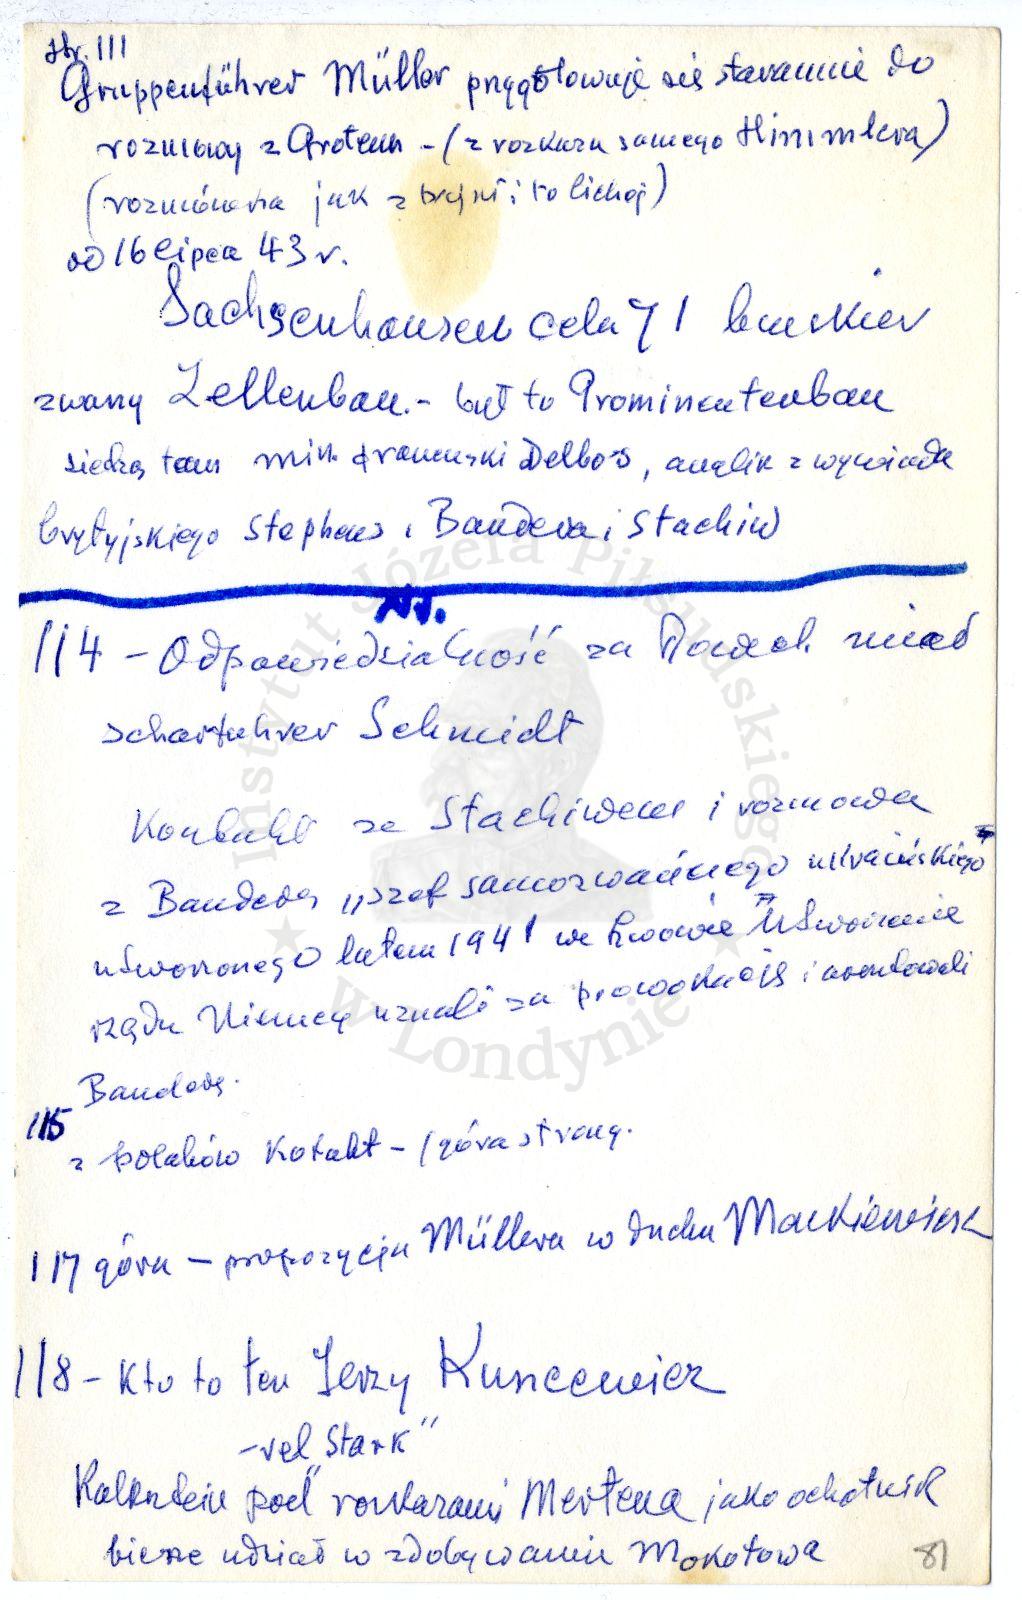 str. 111
Gruppenführer Müller przygotowuje się starannie do
rozmowy z Grotem - (z rozkazu samego Himmlera)
(rozmówka jak z i to lichej)
od 16 lipca 43 r.
Sachsenhausen cela 71 bunkier
zwany Zellenbau. - był to Prominentenbau
siedzą tam min. francuski Delbos, anglik z wywiadu
brytyjskiego Stephens i Bandera i Stachiw
114 - Odpowiedzialność za Rowech. miał
scharfuhrer Schmidt
Kontakt ze Stachiwem i rozmowa
z Banderą „szef samozwańczego ukraińskiego
utworzonego latem 1941 we Lwowie" Utworzenie
rządu Niemcy uznali za prowokację i aresztowali
Banderę.
115
z polaków Kotakt - (góra strony.
117 góra - propozycja Müllera w duchu Mackiewicza
118 - Kto to ten Jerzy Kuncewicz
- vel „Stark"
Kalkstein pod rozkazami Mertena jako ochotnik
bierze udział w zdobywaniu Mokotowa
81
Instytut Józefa Piłsudskiego
w Londynie